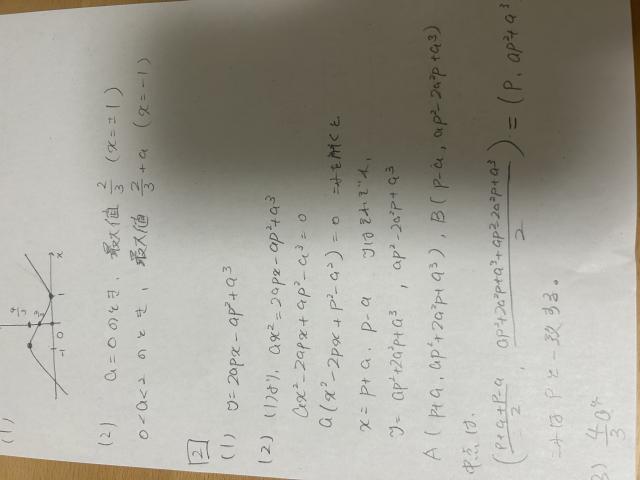 (1)
4/3
2/3
-1 0 1 x
(2) a=0のとき、最大値 2/3 (x=±1)
0<a<2 のとき、最大値 2/3+a (x=-1)
[2]
(1) y=2apx-ap²+a³
(2) (1)より、ax²=2apx-ap²+a³
ax²-2apx+ap²-a³=0
a(x²-2px+p²-a²)=0 これを解くと
x=p+a, p-a yはそれぞれ、
y=ap²+2a²p+a³, ap²-2a²p+a³
A(p+a, ap²+2a²p+a³), B(p-a, ap²-2a²p+a³)
中点は、
((p+a+p-a)/2, (ap²+2a²p+a³+ap²-2a²p+a³)/2) = (p, ap²+a³
これはPと一致する。
3) 4/3 a⁴